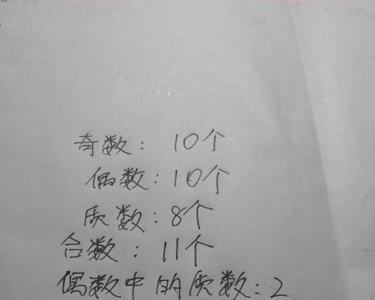 奇数：10个
偶数：10个
质数：8个
合数：11个
偶数中的质数：2